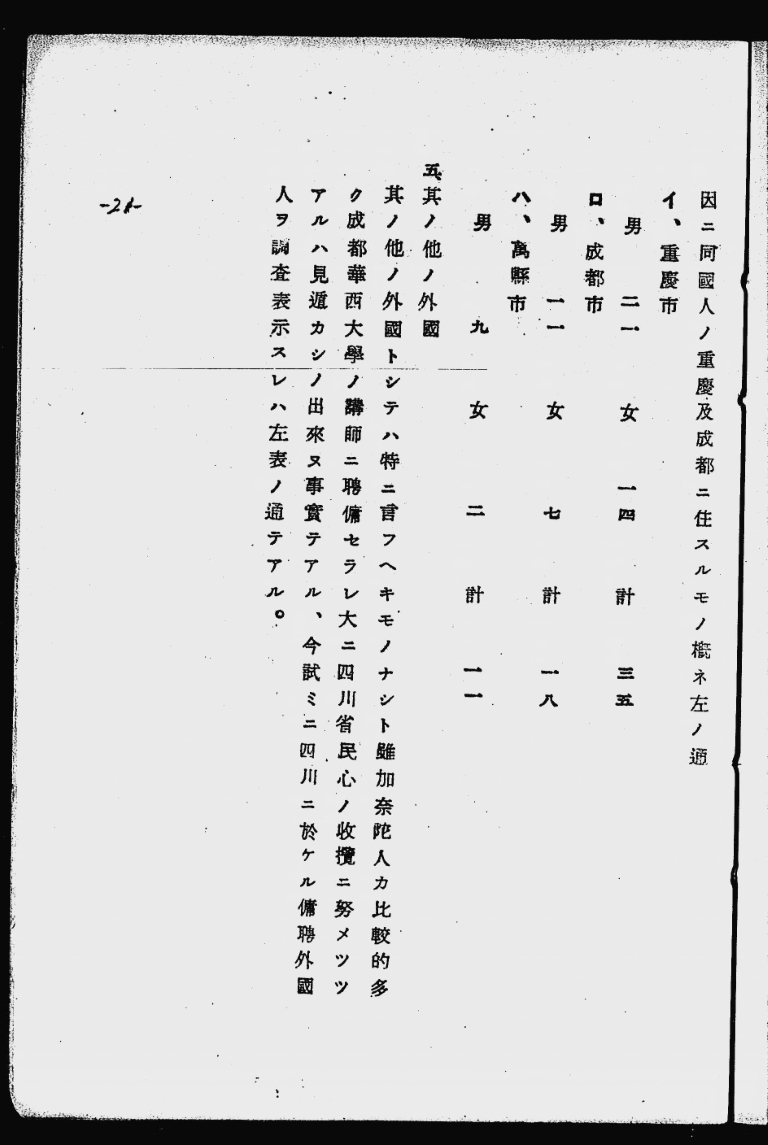 因ニ同國人ノ重慶及成都ニ住スルモノ概ネ左ノ通
イ、重慶市
男 二一 女 一四 計 三五
ロ、成都市
男 一一 女 七 計 一八
ハ、萬縣市
男 九 女 二 計 一一
五、其ノ他ノ外國
其ノ他ノ外國トシテハ特ニ言フヘキモノナシト雖加奈陀人カ比較的多
ク成都華西大學ノ講師ニ聘傭セラレ大ニ四川省民心ノ收攬ニ努メツツ
アルハ見遁カシノ出來ヌ事實テアル、今試ミニ四川ニ於ケル傭聘外國
人ヲ調査表示スレハ左表ノ通テアル。
-21-